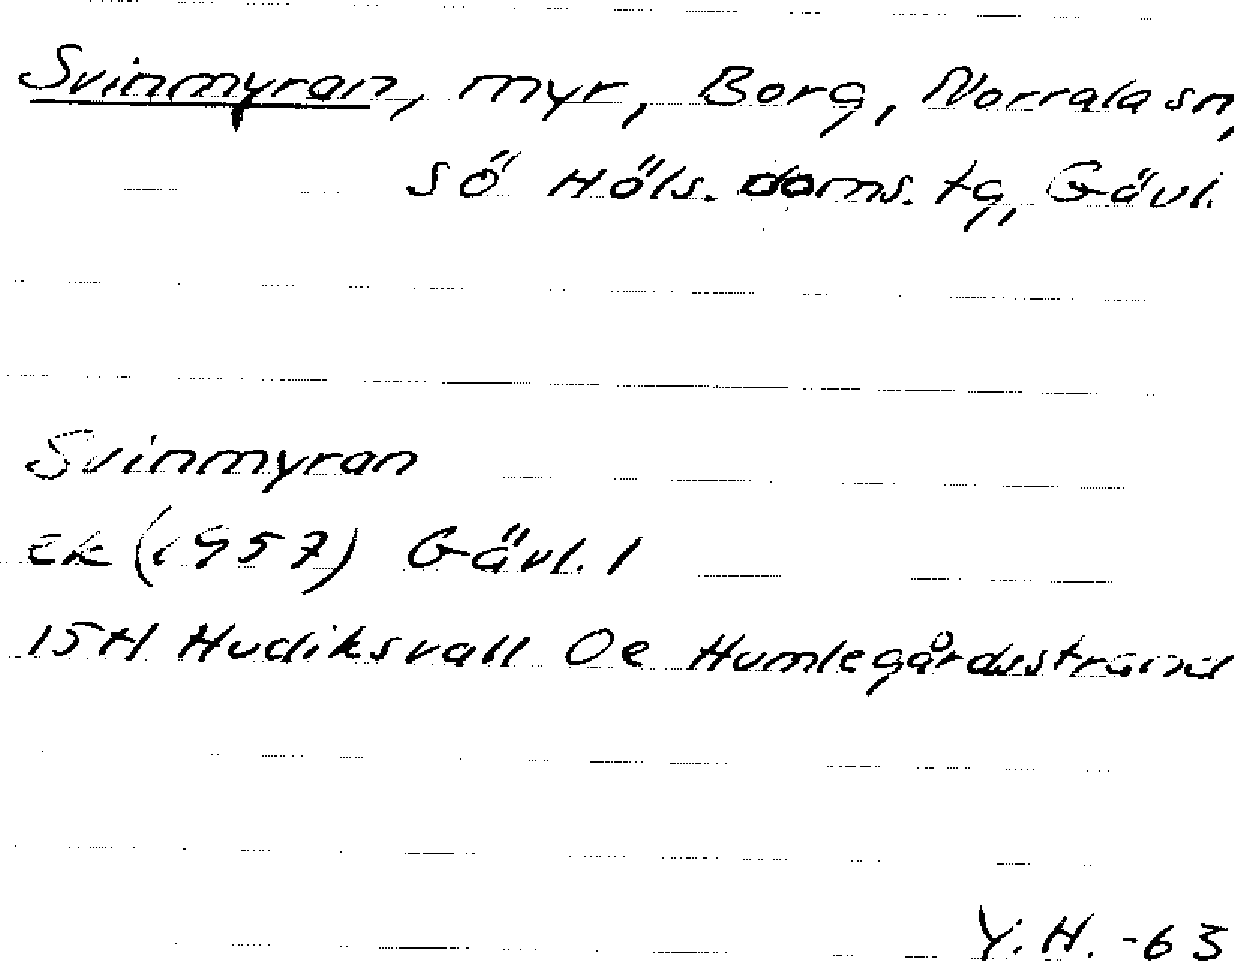 Svinmyran, myr, Borg, Norrala sn,
SÖ Häls. doms. tg, Gävl.
Svinmyran
ek (1957) Gävl. l
15H Hudiksvall 0e Humlegårdsstrand
Y.H. -63